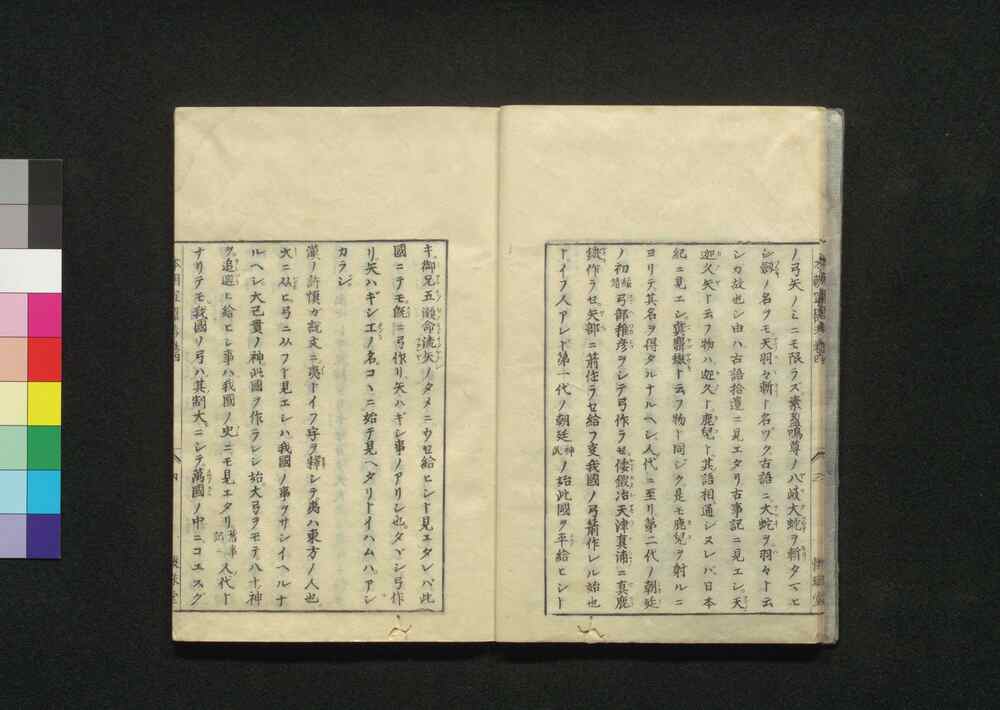 ノ弓矢ノミニモ限ラズ素盞嗚尊ノ八岐大蛇ヲ斬タマヒ
シ劔ノ名ヲモ天羽々斬ト名ヅク古語ニ大蛇ヲ羽々ト云
シカ故也シ由ハ古語拾遺ニ見エタリ古事記ニ見エシ天
迦久矢ト云フ物ハ迦久ト鹿兒ト其語相通シヌレバ日本
紀ニ見エシ ト云フ物ト同ジク是モ鹿兒ヲ射ルニ
ヨリテ其名ヲ得タルナルヘシ人代ニ至リ第二代ノ朝廷
ノ初綏靖弓部稚彦ヲシテ弓作ラセ倭鍛冶天津真浦ニ真鹿
鏃作ラセ矢部ニ箭作ラセ給フ変我國ノ弓箭作レル始也
トイフ人アレド第一代ノ朝廷神武ノ始此國ヲ平給ヒシト
キ御兄五瀬命流矢ノタメニウセ給ヒシト見エタレバ此
國ニテモ既ニ弓作リ矢ハギシ事ノアリシ也タヾシ弓作
リ矢ハギシエノ名コヽニ始テ見ヘタリトイハムハアシ
カラジ
漢ノ許慎ガ説文ニ夷トイフ字ヲ釋シテ夷ハ東方ノ人也
大ニ从ヒ弓ニ从フト見エシハ我國ノ事ヲサシイヘルナ
ルヘシ大己貴ノ神此國ヲ作ラシシ始大弓ヲモテ八十神
ヲ追避ヒ給ヒシ事ハ我國ノ史ニモ見エタリ舊事記人代ト
ナリテモ我國ノ弓ハ其制大ニシテ萬國ノ中ニコエスグ